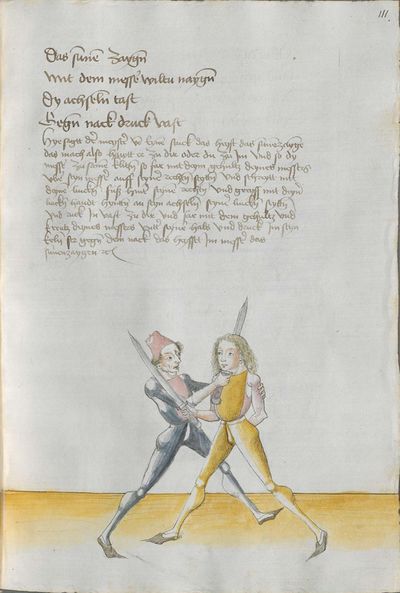 111
Das sunen zaygen
mit dem messer wiltu naygen
Dy achseln tast
Gegen nack druck vast
Hye sagt der meyster von eynem stuck das hayst das sunenzaygen
das mach also hawt er zu dir oder du zu Im und so dy
messer zu samen so far mit dem gehultz deynes messers
seyn messer auff seyner rechten seyten und schreyt mit
deynem lincken fuß seynen rechten und greyff mit deyner
lincken handt hynden an seyn achseln seyner lincken seyten
und ruck In vast zu dir und far mit dem gehultz und
kreutz deynes messers seynen hals und druck Im seyn
keln gegen dem nack das hayst Im messer das
sunenzaygen